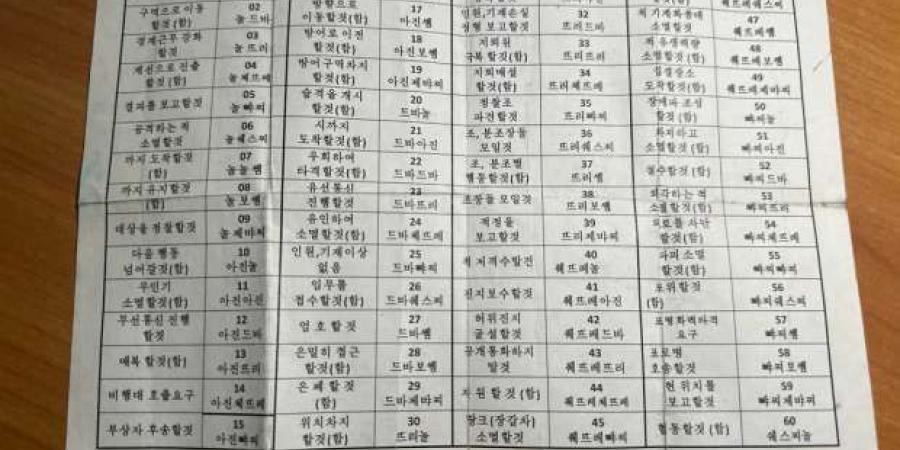 구역으로 이동
할것(함)
02
놀드바
경계근무 강화
할것
03
놀뜨리
계선으로 진출
할것(함)
04
놀췌뜨레
결과를 보고할것
05
놀빠찌
공격하는 적
소멸할것
06
놀쉐스찌
까지 도착할것
(함)
07
놀쎔
까지 유지할것
(함)
08
놀보쎔
대상물 정찰할것
09
놀제뱌찌
다음 행동
넘어갈것(함)
10
아진놀
무인기
소멸할것(함)
11
아진아진
무선통신 진행
할것
12
아진드바
매복 할것(함)
13
아진뜨리
비행대 호출요구
14
아진췌뜨레
부상자 후송할것
15
아진빠찌
방향으로
이동할것(함)
17
아진쎔
방어로 이전
할것(함)
18
아진보쎔
방어구역차지
할것(함)
19
아진제뱌찌
습격을 개시
할것(함)
20
드바놀
시까지
도착할것(함)
21
드바아진
우회하여
타격할것(함)
22
드바드바
유선통신
진행할것
23
드바뜨리
유인하여
소멸할것(함)
24
드바췌뜨레
인원,기재이상
없음
25
드바빠찌
임무를
접수할것(함)
26
드바쉐스찌
엄호할것
27
드바쎔
은밀히 접근
할것(함)
28
드바보쎔
은폐할것
(함)
29
드바제뱌찌
위치차지
할것(함)
30
뜨리놀
인원,기재손실
정형 보고할것
32
뜨리드바
지뢰원
극복할것(함)
33
뜨리뜨리
지뢰매설
할것(함)
34
뜨리췌뜨레
정찰조
파견할것
35
뜨리빠찌
조, 분조장들
모일것
36
뜨리쉐스찌
조, 분조별
행동할것(함)
37
뜨리쎔
조장들 모일것
38
뜨리보쎔
적정을
보고할것
39
뜨리제뱌찌
적저격수발견
40
췌뜨레놀
진지보수할것
41
췌뜨레아진
허위진지
굴설할것
42
췌뜨레드바
공개통화하지
말것
43
췌뜨레뜨리
지원할것(함)
44
췌뜨레췌뜨레
땅크(장갑차)
소멸할것
45
췌뜨레빠찌
적 기계화종대
소멸할것
47
췌뜨레쎔
적 유생력량
소멸할것(함)
48
췌뜨레보쎔
집결장소
도착할것(함)
49
췌뜨레제뱌찌
장애파 조성
할것(함)
50
빠찌놀
차지하고
소멸할것(함)
51
빠찌아진
철수할것(함)
52
빠찌드바
퇴각하는 적
소멸할것(함)
53
빠찌뜨리
퇴로를 차단
할것(함)
54
빠찌췌뜨레
파괴 소멸
할것(함)
55
빠찌빠찌
포위할것
(함)
56
빠찌쉐스찌
포병화력타격
요구
57
빠찌쎔
포로병
호송할것
58
빠찌보쎔
현 위치를
보고할것
59
빠찌제뱌찌
협동할것(함)
60
쉐스찌놀